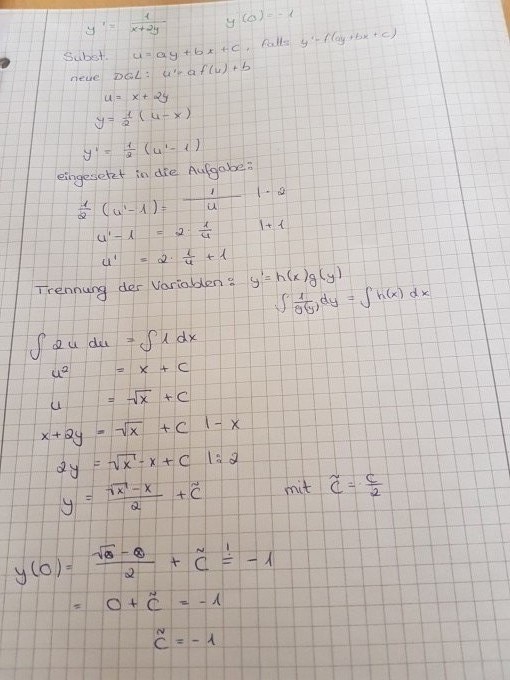 y' = 1/(x+2y)    y(0) = -1
Subst. u = ay + bx + c, falls y' = f(ay+bx+c)
neue DGL: u' = a f(u) + b
u = x + 2y
y = 1/2 (u - x)
y' = 1/2 (u' - 1)
eingesetzt in die Aufgabe:
1/2 (u' - 1) = 1/u    | · 2
u' - 1 = 2 · 1/u    | + 1
u' = 2 · 1/u + 1
Trennung der Variablen: y' = h(x) g(y)
∫ 1/g(y) dy = ∫ h(x) dx
∫ 2u du = ∫ 1 dx
u² = x + C
u = √x + C
x + 2y = √x + C    | - x
2y = √x - x + C    | : 2
y = (√x - x)/2 + C̃    mit C̃ = C/2
y(0) = (√0 - 0)/2 + C̃ =! -1
= 0 + C̃ = -1
C̃ = -1